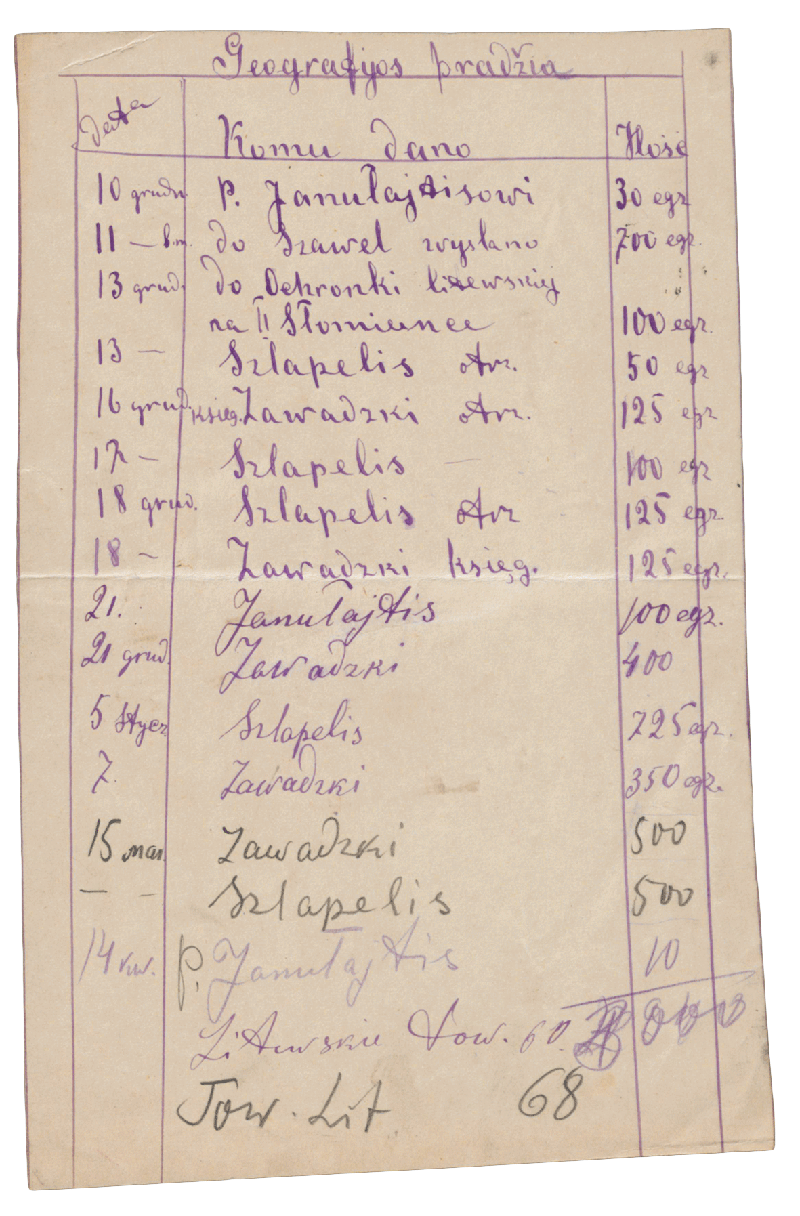 Geografijos pradžia
Data Komu dano Ilość
10 grudn P. Janułajtisowi 30 egz
11 — b.m. do Szawel wysłano 700 egz.
13 grud. do Ochronki litewskiej
na II Słomiance 100 egz.
13 — Szlapelis otrz. 50 egz
16 grud. księg. Zawadzki otrz. 125 egz
17 — Szlapelis — 100 egz
18 grud. Szlapelis otrz 125 egz
18 — Zawadzki księg. 125 egz.
21. Janułajtis 100 egz.
21 grud. Zawadzki 400
5 stycz Szlapelis 725 egz.
7. Zawadzki 350 egz.
15 mar. Zawadzki 500
— — Szlapelis 500
14 kw. P. Janułajtis 10
Litewskie tow. 60 000
Tow. Lit. 68